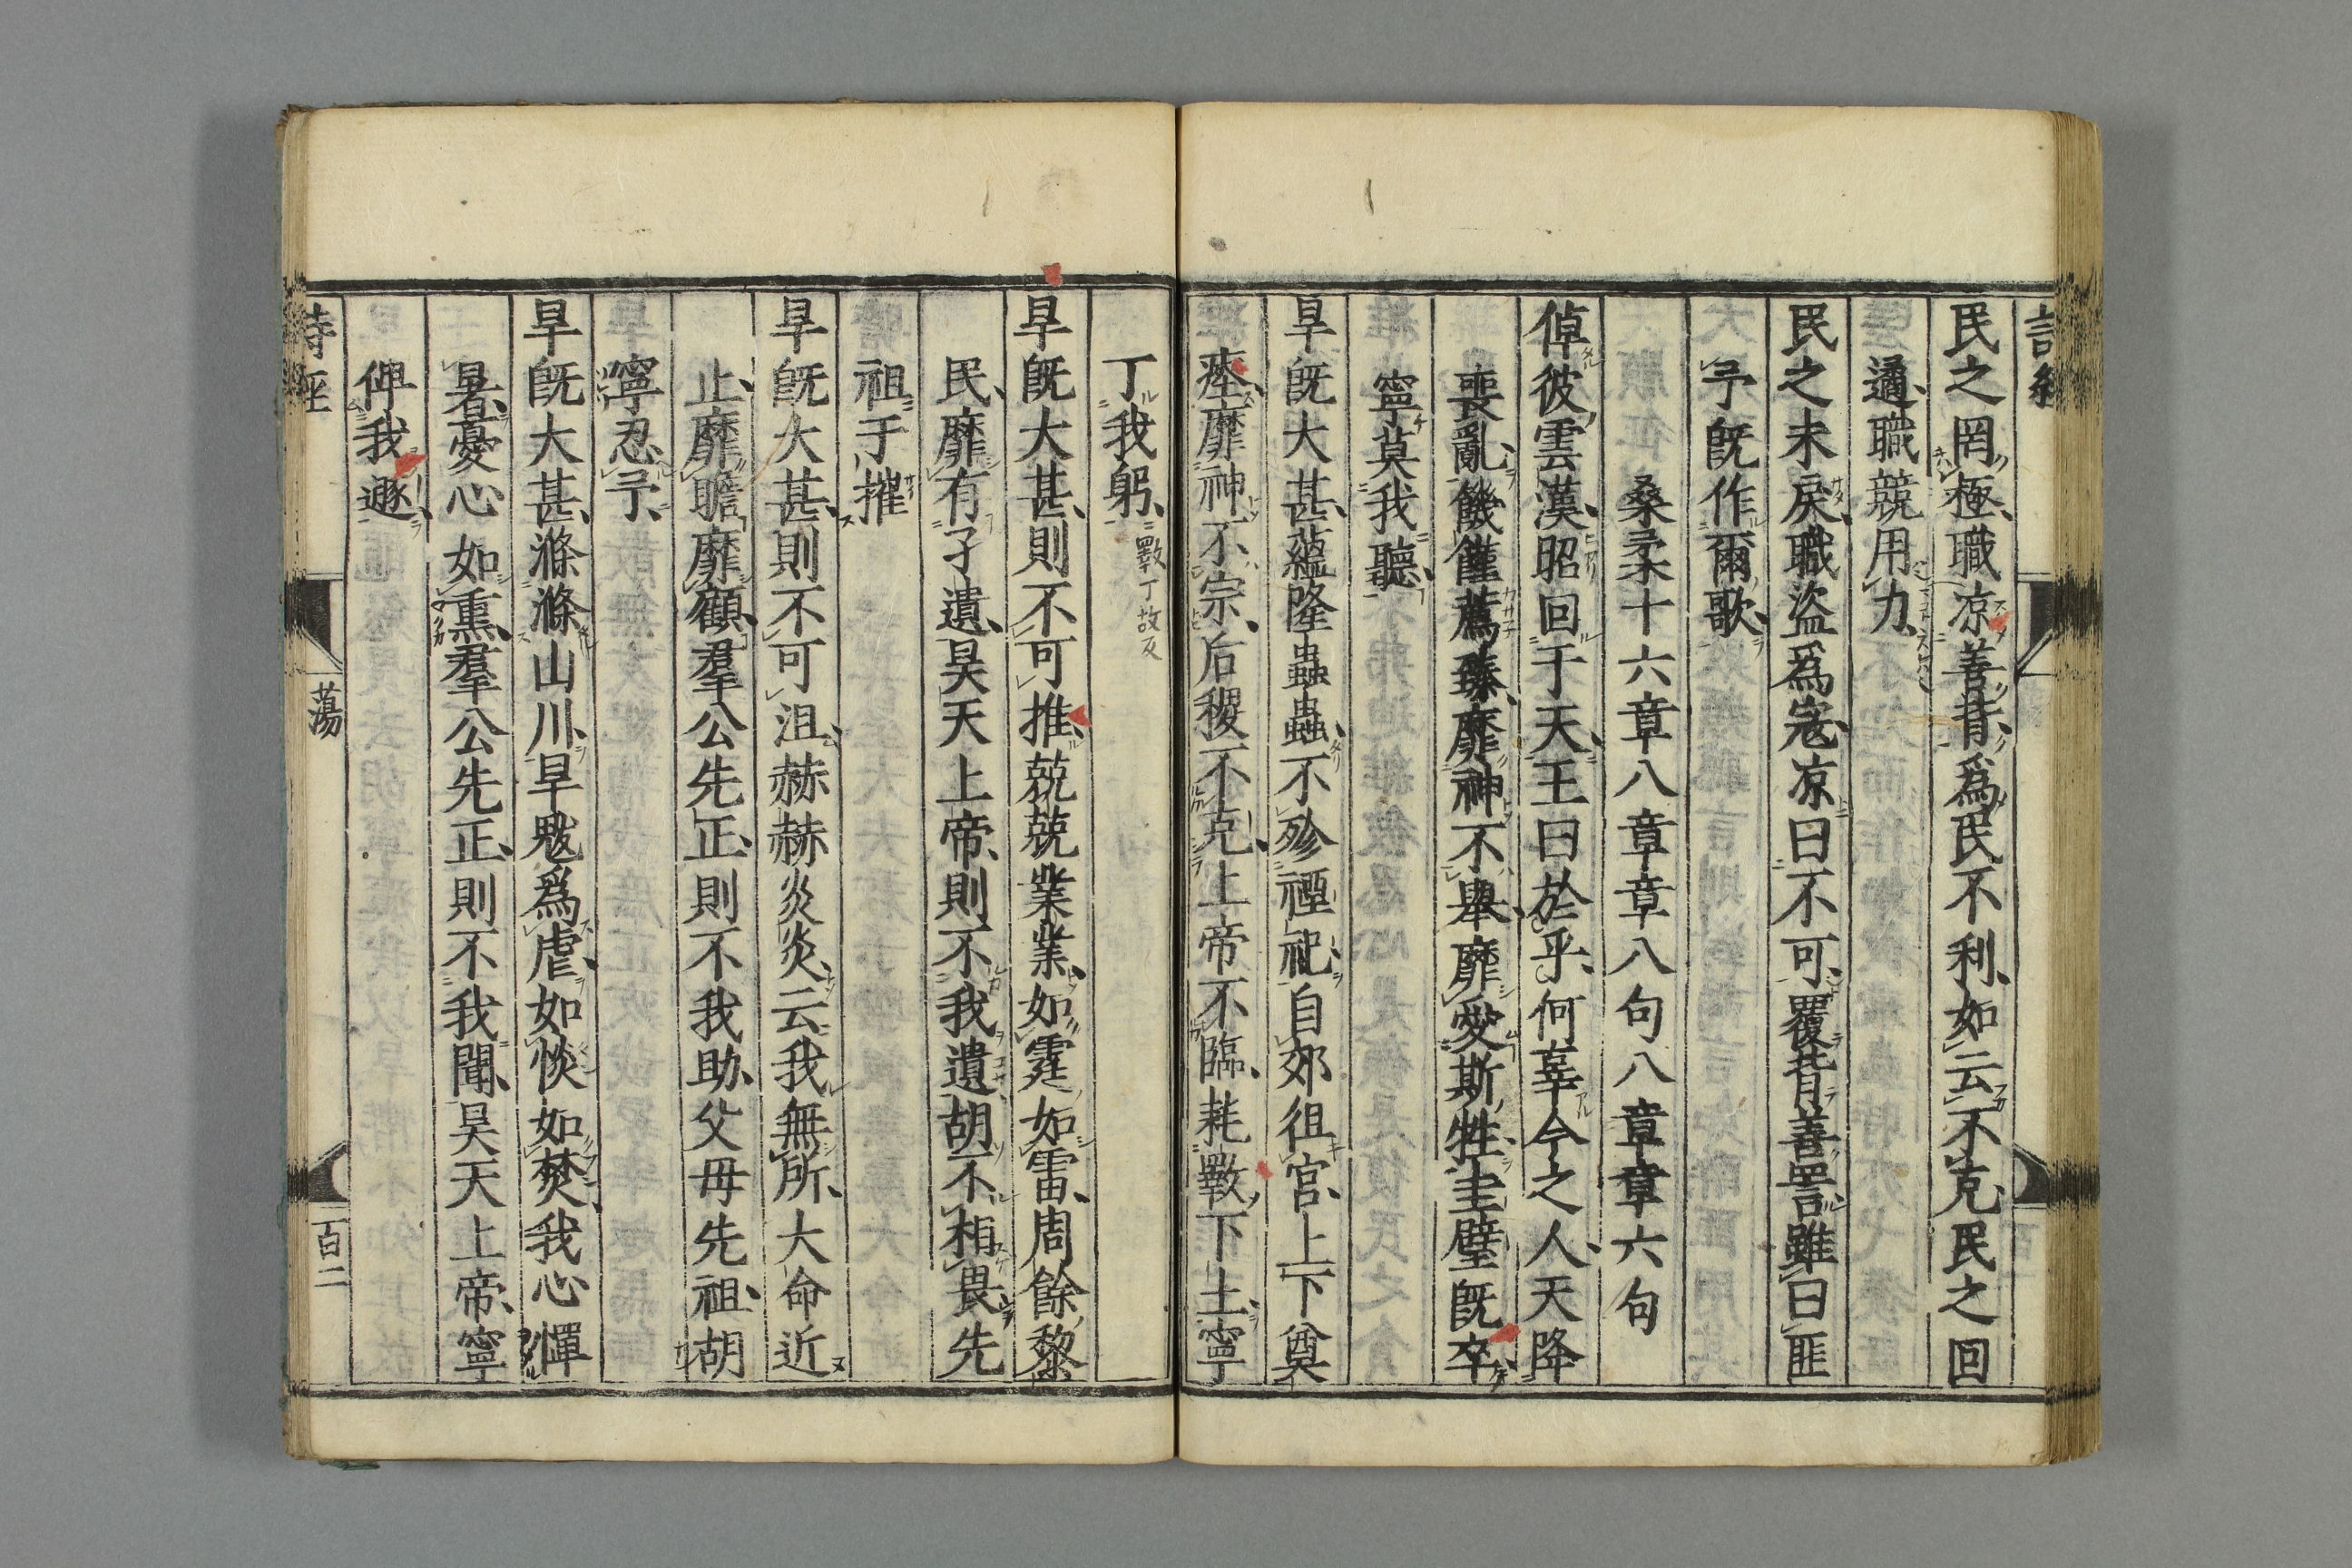 民之罔極職凉善背爲民不利如云不克民之回
遹職競用力
民之未戾職盜爲寇凉曰不可覆背善詈雖曰匪
予既作爾歌
桑柔十六章八章章八句八章章六句
倬彼雲漢昭回于天王曰於乎何辜今之人天降
喪亂饑饉薦臻靡神不舉靡愛斯牲圭璧既卒
寧莫我聽
旱既大甚蘊隆蟲蟲不殄禋祀自郊徂宮上下奠
瘞靡神不宗后稷不克上帝不臨耗斁下土寧
丁我躬
斁丁故反
旱既大甚則不可推兢兢業業如霆如雷周餘黎
民靡有孑遺昊天上帝則不我遺胡不相畏先
祖于摧
旱既大甚則不可沮赫赫炎炎云我無所大命近
止靡瞻靡顧羣公先正則不我助父母先祖胡
寧忍予
旱既大甚滌滌山川旱魃爲虐如惔如焚我心憚
暑憂心如熏羣公先正則不我聞昊天上帝寧
俾我遯
詩經
蕩
百二